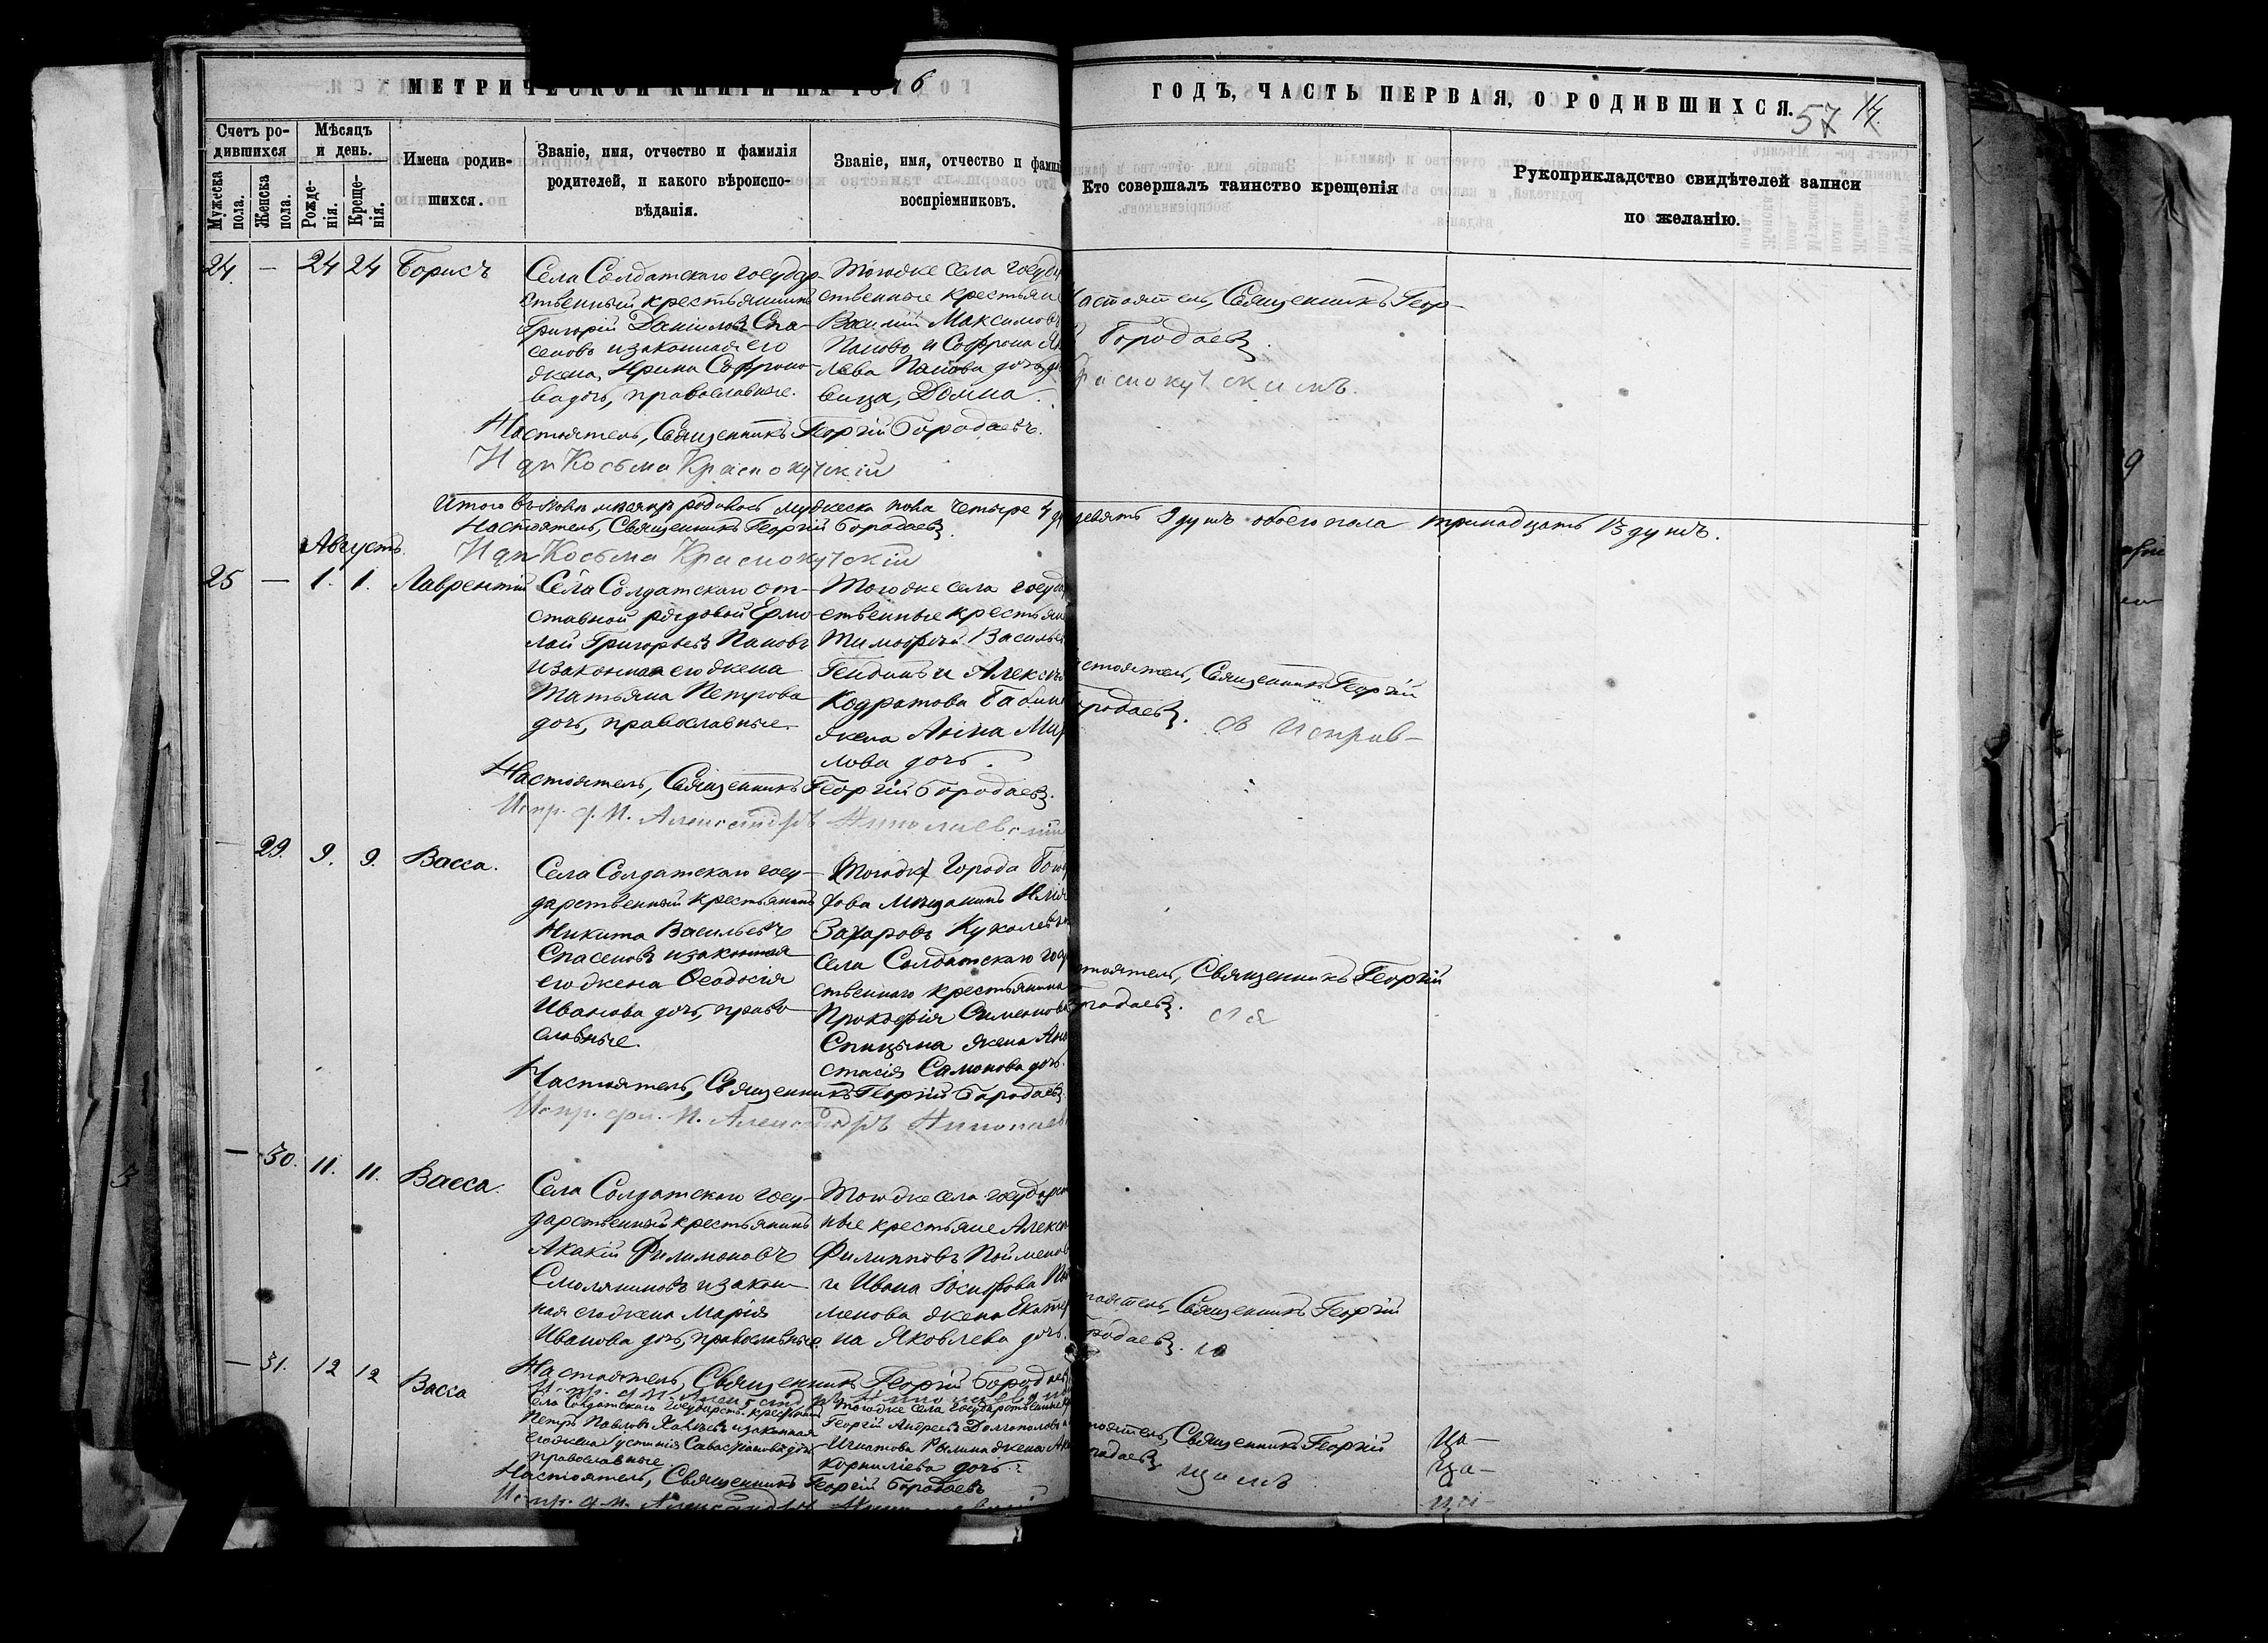 МЕТРИЧЕСКОЙ КНИГИ НА 1876
ГОДЪ, ЧАСТЬ ПЕРВАЯ, О РОДИВШИХСЯ.
57 14.
Счетъ ро-
дившихся
Мужеска пола.
Женска пола.
Мѣсяцъ
и день.
Рожде-
нія.
Креще-
нія.
Имена родив-
шихся.
Званіе, имя, отчество и фамилія
родителей, и какого вѣроиспо-
вѣданія.
Званіе, имя, отчество и фами
воспріемниковъ.
Кто совершалъ таинство крещенія
Рукоприкладство свидѣтелей записи
по желанію.
24. — 24 24 Борисъ
Села Солдатскаго государ-
ственный крестьянинъ
Григорій Даніиловъ Спа-
сеновъ и законная его
жена, Ирина Софроно-
ва дочь, православные.
Тогоже села госуд
ственные крестьян
Василій Максимовъ
Пановъ и Софрона Як
лева Панова дочь дѣ
вица, Домна.
Настоятель, Священникъ Геор-
Городаевъ.
Настоятель, Священникъ Георгій Городаевъ.
И дп Косьма Краснокутскій
Итого въ Іюлѣ мѣсяцѣ родилось мужеска пола четыре 4 ду
девять 9 душъ обоего пола тринадцать 13 душъ.
Настоятель, Священникъ Георгій Городаевъ.
И дп Косьма Краснокутскій
Августъ.
25 — 1. 1. Лаврентій
Села Солдатскаго от-
ставной рядовой Ермо-
лай Григорьевъ Пановъ
и законная его жена
Татьяна Петрова
дочь, православные.
Тогоже села госуд
ственные крестьяне
Тимофей Васильев
Гендинъ и Алексѣ
Кодратова Бабин
жена Анна Ми
лова дочь.
стоятель, Священникъ Георгій
ородаевъ. съ Исправ-
Настоятель, Священникъ Георгій Городаевъ.
Испр. д. П. Александръ Николаевскій
— 29. 9. 9. Васса.
Села Солдатскаго госу-
дарственный крестьянинъ
Никита Васильевъ
Спасеновъ и законная
его жена Ѳеодосія
Иванова дочь, право-
славные.
(Тогоже) Города
мѣщанинъ Илія
Захаровъ
села Солдатскаго гос
ственнаго крестьянина
Прокофія Симеонова
Спицына жена Ана
стасія Самонова дочь.
тоятель, Священникъ Георгій
ородаевъ.
Настоятель, Священникъ Георгій Городаевъ.
Испр. дол. П. Александръ Николаев
— 30. 11. 11. Васса.
Села Солдатскаго госу-
дарственный крестьянинъ
Акакій Филимоновъ
Смоляниновъ и закон-
ная его жена Марія
Иванова дочь, православные.
Тогоже села государст
ные крестьяне Алекс
Филипповъ Пойменов
и Ивана Іосифова Пой
менова жена Екатер
на Яковлева дочь.
тоятель, Священникъ Георгій
ородаевъ.
Настоятель, Священникъ Георгій Городаевъ
— 31. 12 12 Васса
Села Солдатскаго Государст. крестьянинъ
Петръ Павловъ и законная
его жена Іустинія Савастіанова дочь
православные
Тогоже села Государственные
Георгій Андреевъ Долгополовъ и
Игнатова Рылина жена Ак
Корниліева дочь.
тоятель, Священникъ Георгій
ородаевъ
Настоятель, Священникъ Георгій Городаевъ